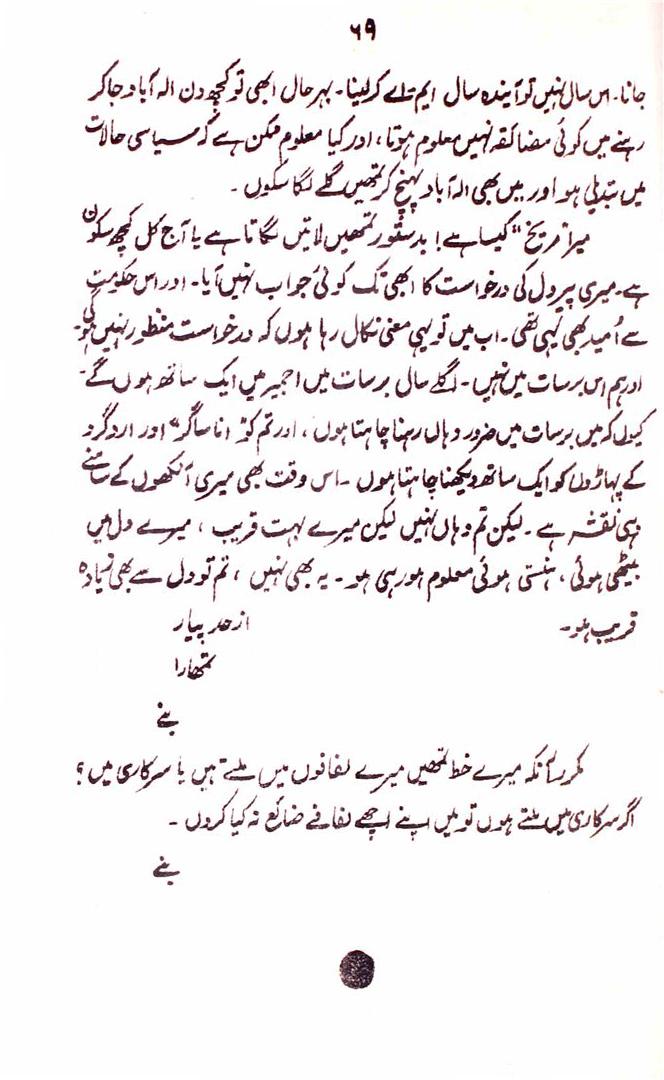 ۶۹
جانا۔ اس سال نہیں تو آیندہ سال ایم۔ اے کر لینا۔ بہر حال ابھی تو کچھ دن الہ آباد جا کر
رہنے میں کوئی مضائقہ نہیں معلوم ہوتا، اور کیا معلوم ممکن ہے کہ سیاسی حالات
میں تبدیلی ہو اور میں بھی الہ آباد پہنچ کر تمھیں گلے لگا سکوں۔
میرا "مریخ" کیسا ہے! بدستور تمھیں لاتیں لگاتا ہے یا آج کل کچھ سکون
ہے۔ میری پیرول کی درخواست کا ابھی تک کوئی جواب نہیں آیا۔ اور اس حکومت
سے اُمید بھی یہی تھی۔ اب میں تو یہی معنی نکال رہا ہوں کہ درخواست منظور نہیں ہوگی۔
اور ہم اس برسات میں نہیں۔ اگلے سال برسات میں اجمیر میں ایک ساتھ ہوں گے۔
کیوں کہ میں برسات میں ضرور وہاں رہنا چاہتا ہوں، اور تم کو "انا ساگر" اور اردگرد
کے پہاڑوں کو ایک ساتھ دیکھنا چاہتا ہوں۔ اس وقت بھی میری آنکھوں کے سامنے
وہی نقشہ ہے۔ لیکن تم وہاں نہیں لیکن میرے بہت قریب، میرے دل میں
بیٹھی ہوئی، ہنستی ہوئی معلوم ہو رہی ہو۔ یہ بھی نہیں، تم تو دل سے بھی زیادہ
قریب ہو۔ از حد پیار
تمھارا
بنے
مکرر آنکہ میرے خط تمھیں میرے لفافوں میں ملتے ہیں یا سرکاری میں؟
اگر سرکاری میں ملتے ہوں تو میں اپنے اچھے لفافے ضائع نہ کیا کروں۔
بنے